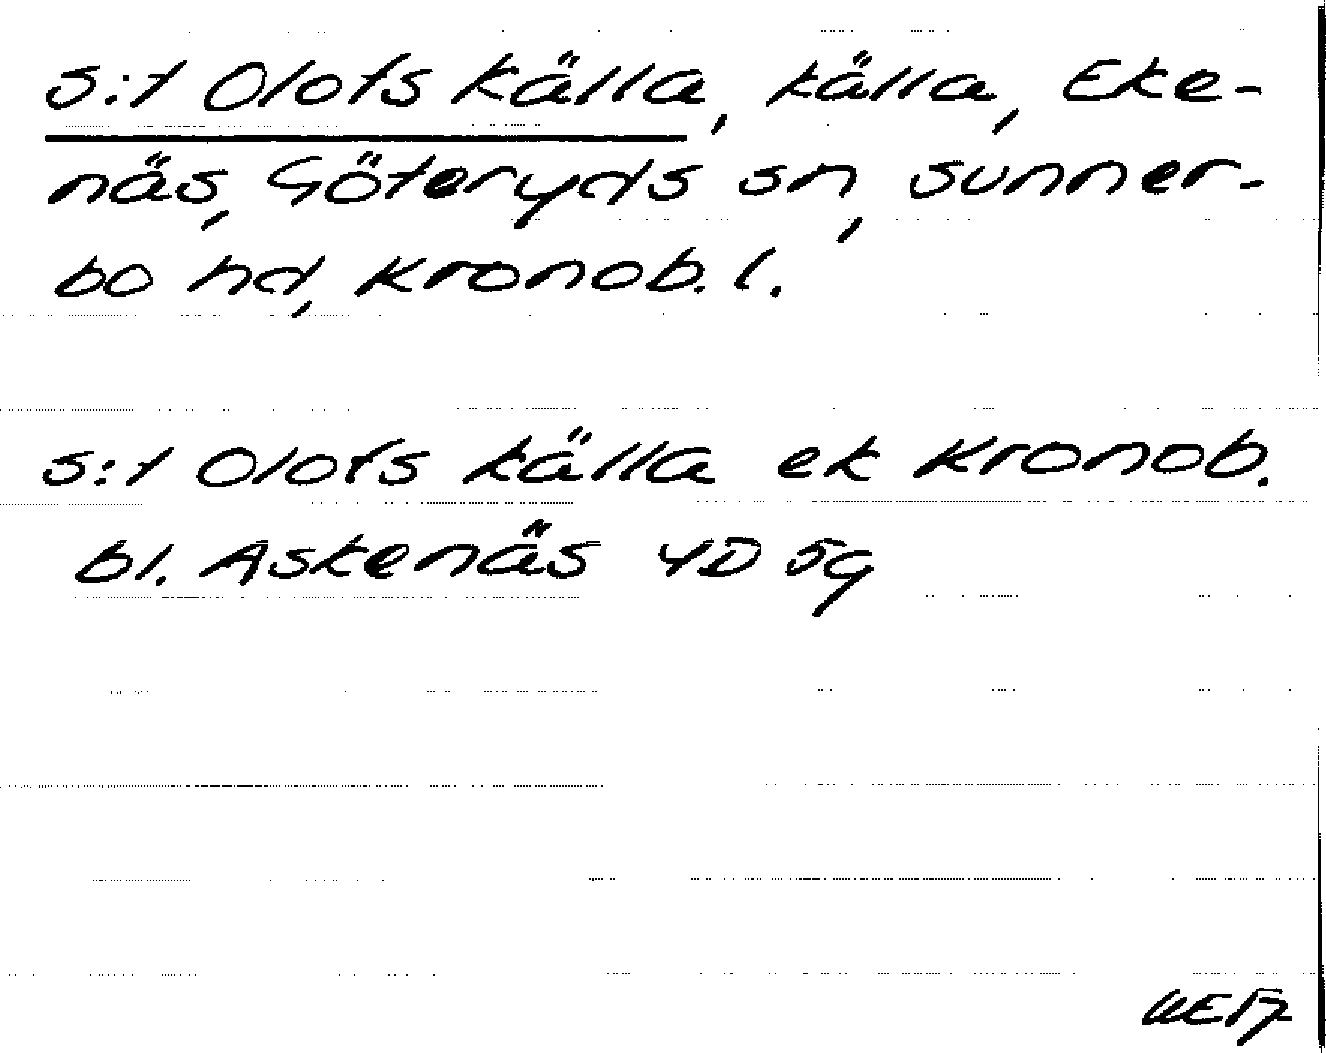 S:t Olofs källa, källa, Eke-
näs, Göteryds sn, Sunner-
bo hd, Kronob. l.
S:t Olofs källa ek Kronob.
bl. Askenäs 4D 5g